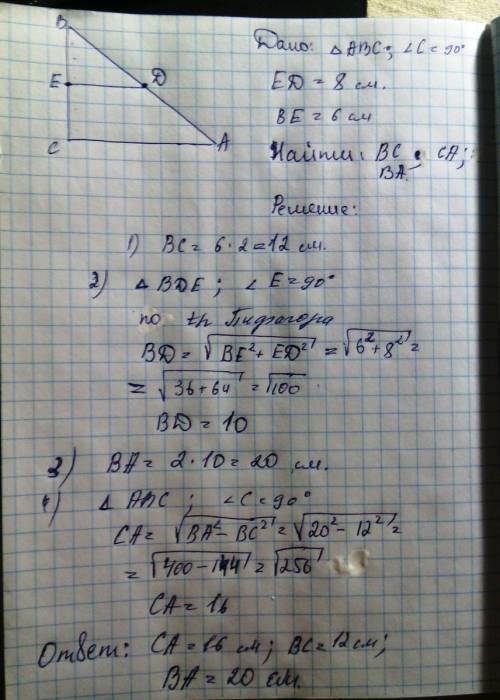 B
E
D
C
A
Дано: △ABC; ∠C=90°
ED = 8 см.
BE = 6 см
Найти: BC ; CA;
BA
Решение:
1) BC = 6·2=12 см.
2) △ BDE ; ∠ E=90°
по тр Пифагора
BD= √BE²+ED² = √6²+8² =
= √36+64 = √100
BD = 10
3) BA= 2·10= 20 см.
4) △ ABC ; ∠C=90°
CA= √BA²-BC² = √20²-12² =
= √400-144 = √256
CA = 16
Ответ: CA=16 см; BC=12см;
BA = 20 см.